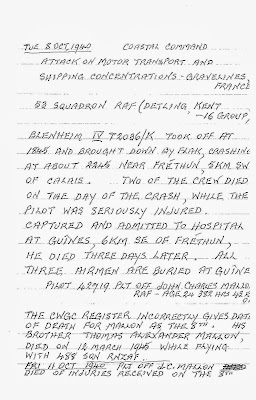 TUE 8 OCT, 1940 COASTAL COMMAND
ATTACK ON MOTOR TRANSPORT AND
SHIPPING CONCENTRATIONS - GRAVELINES,
FRANCE
53 SQUADRON RAF (DETLING, KENT
- 16 GROUP,
BLENHEIM IV T2036/K TOOK OFF AT
1845 AND BROUGHT DOWN BY FLAK, CRASHING
AT ABOUT 2245 NEAR FRÉTHUN, 5KM SW
OF CALAIS. TWO OF THE CREW DIED
ON THE DAY OF THE CRASH, WHILE THE
PILOT WAS SERIOUSLY INJURED.
CAPTURED AND ADMITTED TO HOSPITAL
AT GUÎNES, 6KM SE OF FRÉTHUN,
HE DIED THREE DAYS LATER. ALL
THREE AIRMEN ARE BURIED AT GUÎNE
PILOT 42719 PLT OFF JOHN CHARLES MALLO
RAF - AGE 24 352 HRS
THE CWGC REGISTER INCORRECTLY GIVES DATE
OF DEATH FOR MALLON AS THE 8TH. HIS
BROTHER THOMAS ALEXANDER MALLON,
DIED ON 12 MARCH 1945 WHILE FLYING
WITH 488 SQN RNZAF.
FRI 11 OCT 1940 PLT OFF J.C. MALLON
DIED OF INJURIES RECEIVED ON THE 8TH